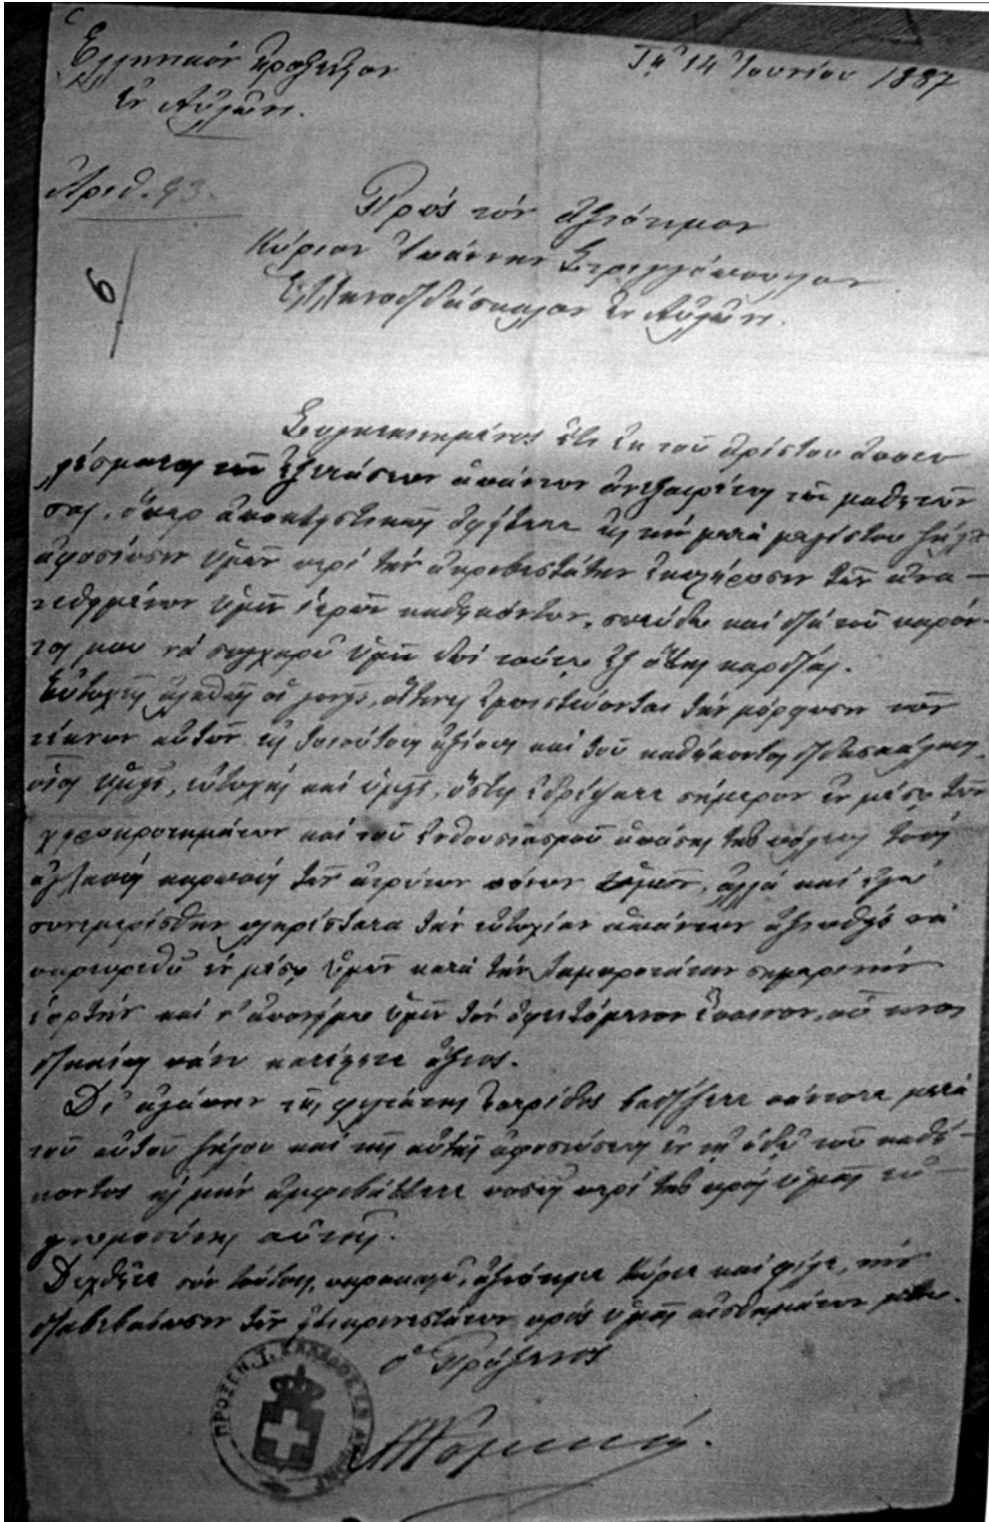 Ἑλληνικόν Προξενεῖον
Ἐν Αὐλῶνι.
Τῇ 14 Ἰουνίου 1887
Ἀριθ. 93.
6
Πρός τόν ἀξιότιμον
Κύριον Ἰωάννην
Ἑλληνοδιδάσκαλον ἐν Αὐλῶνι.
ὅτι ἐκ τοῦ ἀρίστου ἀποτε-
λέσματος τῶν ἐξετάσεων ἁπάντων ἀνεξαιρέτως τῶν μαθητῶν
σας, ὅπερ ἀποκλειστικῶς ὀφείλεται εἰς τήν μετά μεγίστου ζήλου
ἀφοσίωσιν ὑμῶν περί τήν ἀκριβεστάτην ἐκπλήρωσιν τῶν ἀνα-
τεθειμένων ὑμῖν ἱερῶν καθηκόντων, σπεύδω καί διά τοῦ παρόν-
τος μου νά συγχαρῶ ὑμῖν ἐπί τούτῳ ἐξ ὅλης καρδίας.
Εὐτυχεῖς ἀληθῶς οἱ γονεῖς, οἵτινες ἐμπιστεύονται τήν μόρφωσιν τῶν
τέκνων αὐτῶν εἰς τοιούτους ἀξίους καί τοῦ καθήκοντος διδασκάλους,
οἷος ὑμεῖς, εὐτυχής καί ὑμεῖς, ὅστις ἐδρέψατε σήμερον ἐν μέσῳ τῶν
χειροκροτημάτων καί τοῦ ἐνθουσιασμοῦ ἁπάσης τῆς πόλεως τούς
καρπούς τῶν ἀτρύτων πόνων ὑμῶν, ἀλλά καί ἐγώ
συνεμερίσθην τήν εὐτυχίαν ἁπάντων ἀξιωθείς νά
παρευρεθῶ ἐν μέσῳ ὑμῶν κατά τήν λαμπροτάτην σημερινήν
ἑορτήν καί ν' ἀπονείμω ὑμῖν τόν ὀφειλόμενον ἔπαινον, οὗ τινος
δικαίως πάνυ κατέχετε ἄξιος.
Δι' ἀγάπην τῆς φιλτάτης πατρίδος βαδίζετε πάντοτε μετά
τοῦ αὐτοῦ ζήλου καί τῆς αὐτῆς ἀφοσιώσεως ἐν τῇ ὁδῷ τοῦ καθή-
κοντος καί μήν ἀμφιβάλλετε ποσῶς περί τῆς πρός ὑμᾶς εὐ-
γνωμοσύνης αὐτῆς.
Δεχθῆτε σύν τούτοις, παρακαλῶ, ἀξιότιμε Κύριε καί φίλε, τήν
διαβεβαίωσιν τῶν εἰλικρινεστάτων πρός ὑμᾶς αἰσθημάτων μου.
Ὁ Πρόξενος
ΠΡΟΞΕΝ. Τ. ΕΛΛΑΔΟΣ ΕΝ ΑΥΛΩΝΙ